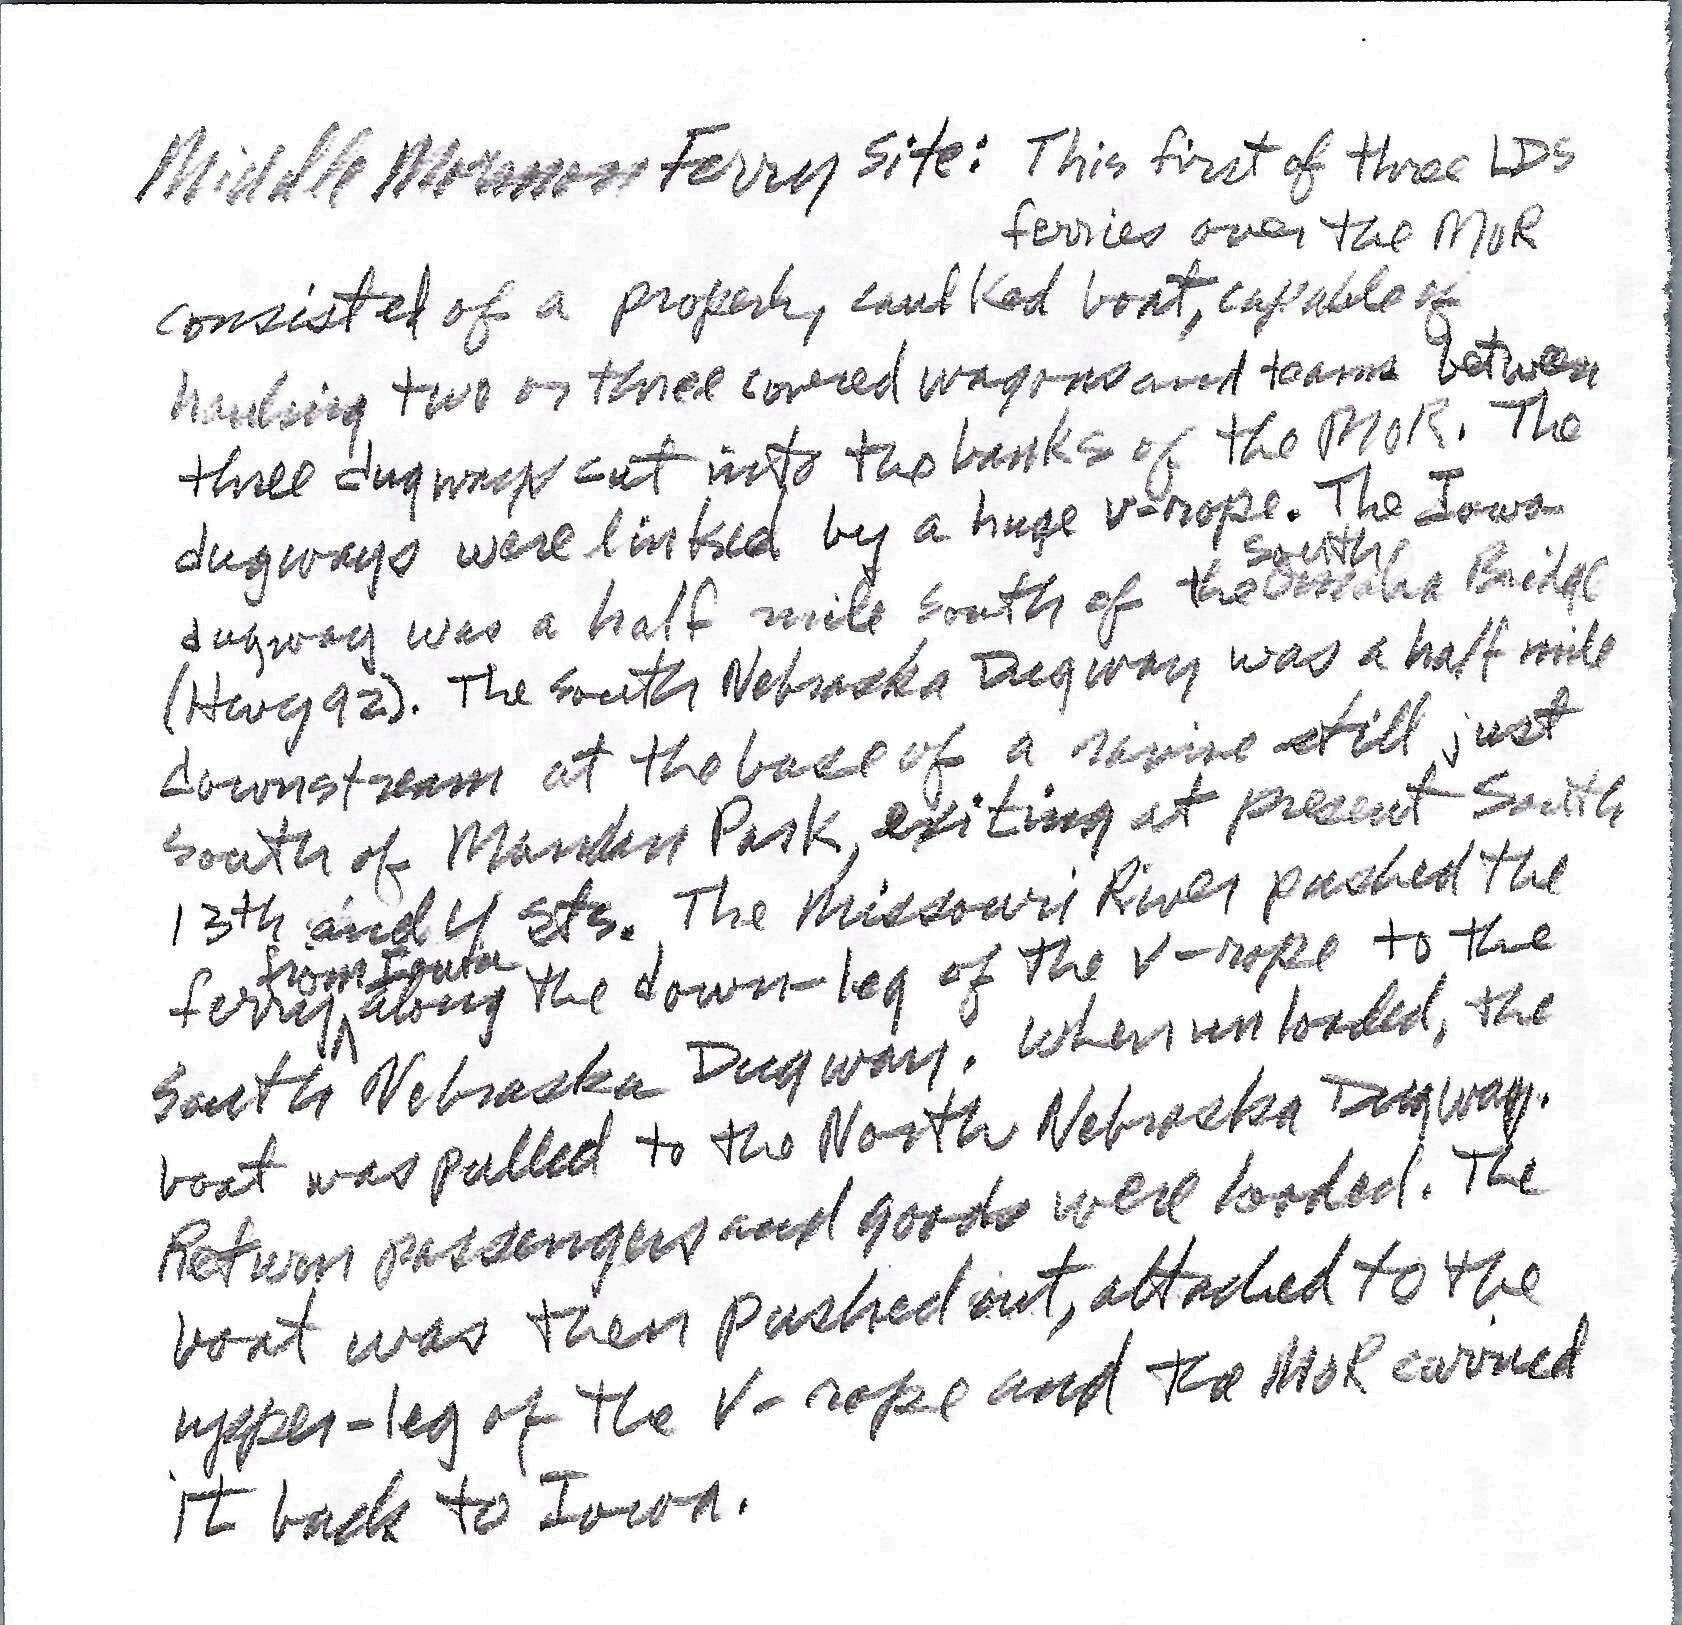 Middle Mormon Ferry Site: This first of three LDS
ferries over the MoR
consisted of a properly caulked boat, capable of
hauling two or three covered wagons and teams between
three dugways cut into the banks of the MoR. The
dugways were linked by a huge V-rope. The Iowa
dugway was a half mile south of the South Omaha Bridge
(Hwy 92). The South Nebraska Dugway was a half mile
downstream at the base of a ravine still just
south of Mandan Park, exiting at present South
13th and Y Sts. The Missouri River pushed the
ferry from Iowa along the down-leg of the V-rope to the
South Nebraska Dugway. When unloaded, the
boat was pulled to the North Nebraska Dugway.
Return passengers and goods were loaded. The
boat was then pushed out, attached to the
upper-leg of the V-rope and the MoR carried
it back to Iowa.